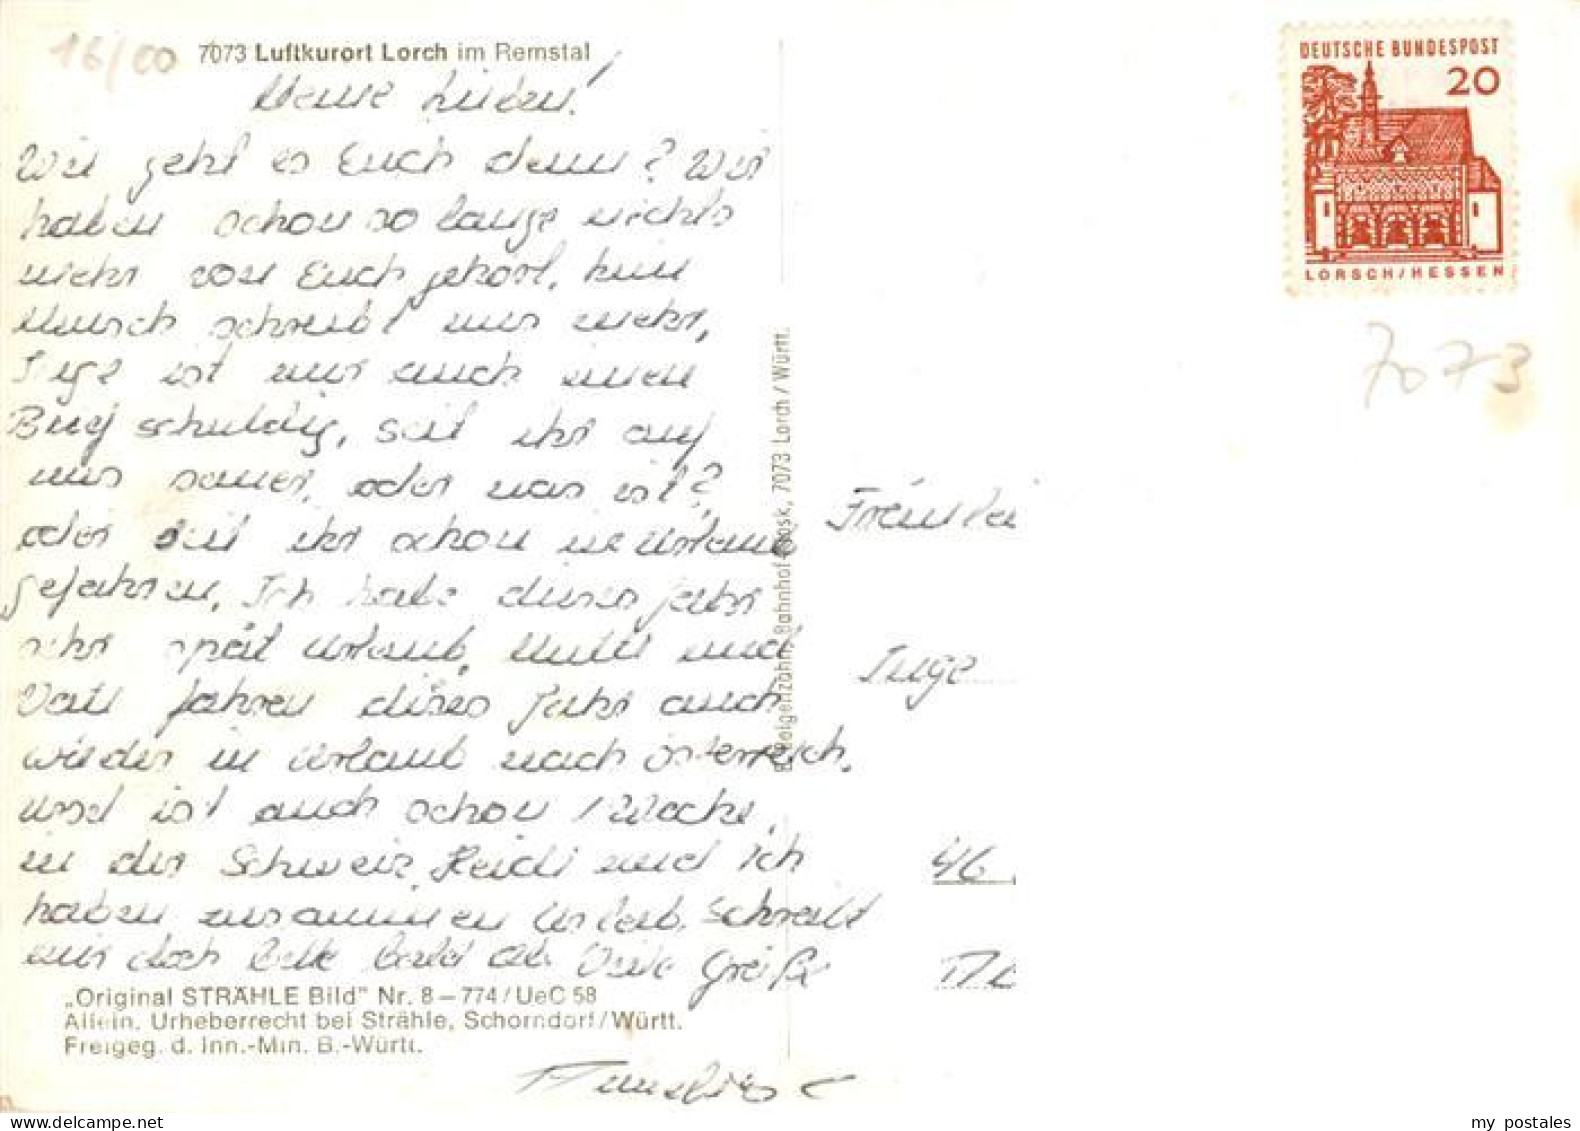 16/00
7073 Luftkurort Lorch im Remstal
Meine Lieben!
Wie geht es Euch denn? Wir
haben schon so lange nichts
mehr von Euch gehört, kein
Mensch schreibt mir mehr,
Inge ist mir auch einen
Brief schuldig, seit ihr auf
mir sauer, oder was ist?
oder seit ihr schon in Urlaub
gefahren. Ich habe dieses Jahr
sehr spät Urlaub, Mutti und
Vati fahren dieses Jahr auch
wieder in Urlaub nach Österreich.
und ist auch schon 1 Woche
in der Schweiz, Heidi und ich
haben zusammen Urlaub. Schreibt
mir doch bitte bald ab Viele Grüße
„Original STRÄHLE Bild" Nr. 8–774/UeC 58
Allein. Urheberrecht bei Strähle, Schorndorf/Württ.
Freigeg. d. Inn.-Min. B.-Württ.
Bahnhof-Kiosk, 7073 Lorch/Württ.
DEUTSCHE BUNDESPOST
20
LORSCH/HESSEN
7073
Fräulei
Inge
46
my postales